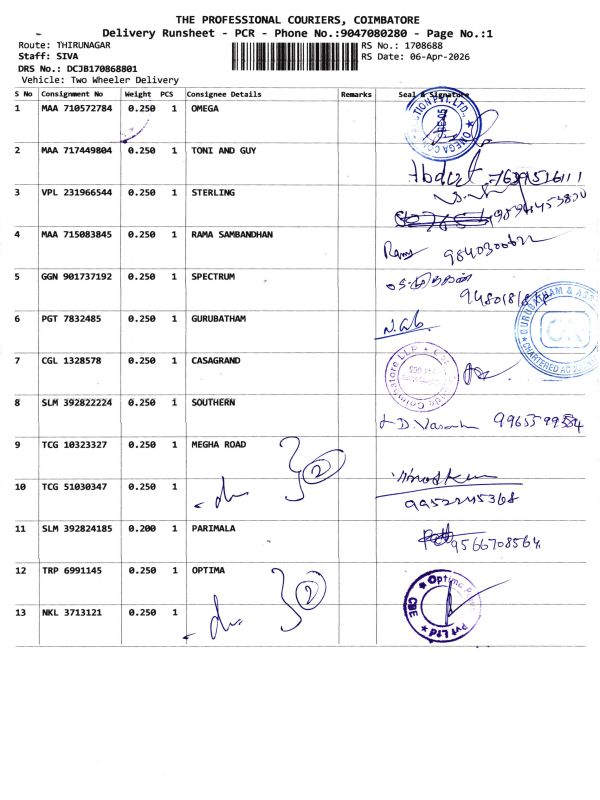 THE PROFESSIONAL COURIERS, COIMBATORE
Delivery Runsheet - PCR - Phone No.:9047080280 - Page No.:1
Route: THIRUNAGAR
RS No.: 1708688
Staff: SIVA
RS Date: 06-Apr-2026
DRS No.: DCJB170868801
Vehicle: Two Wheeler Delivery
S No Consignment No Weight PCS Consignee Details Remarks Seal & Signature
1 MAA 710572784 0.250 1 OMEGA
2 MAA 717449804 0.250 1 TONI AND GUY
3 VPL 231966544 0.250 1 STERLING
4 MAA 715083845 0.250 1 RAMA SAMBANDHAN
Ramu
5 GGN 901737192 0.250 1 SPECTRUM
6 PGT 7832485 0.250 1 GURUBATHAM
GURUBATHAM &
CHARTERED
7 CGL 1328578 0.250 1 CASAGRAND
8 SLM 392822224 0.250 1 SOUTHERN
9 TCG 10323327 0.250 1 MEGHA ROAD
2
10 TCG 51030347 0.250 1
9952245368
11 SLM 392824185 0.200 1 PARIMALA
9566708564
12 TRP 6991145 0.250 1 OPTIMA
2
13 NKL 3713121 0.250 1
Pvt Ltd
CBE